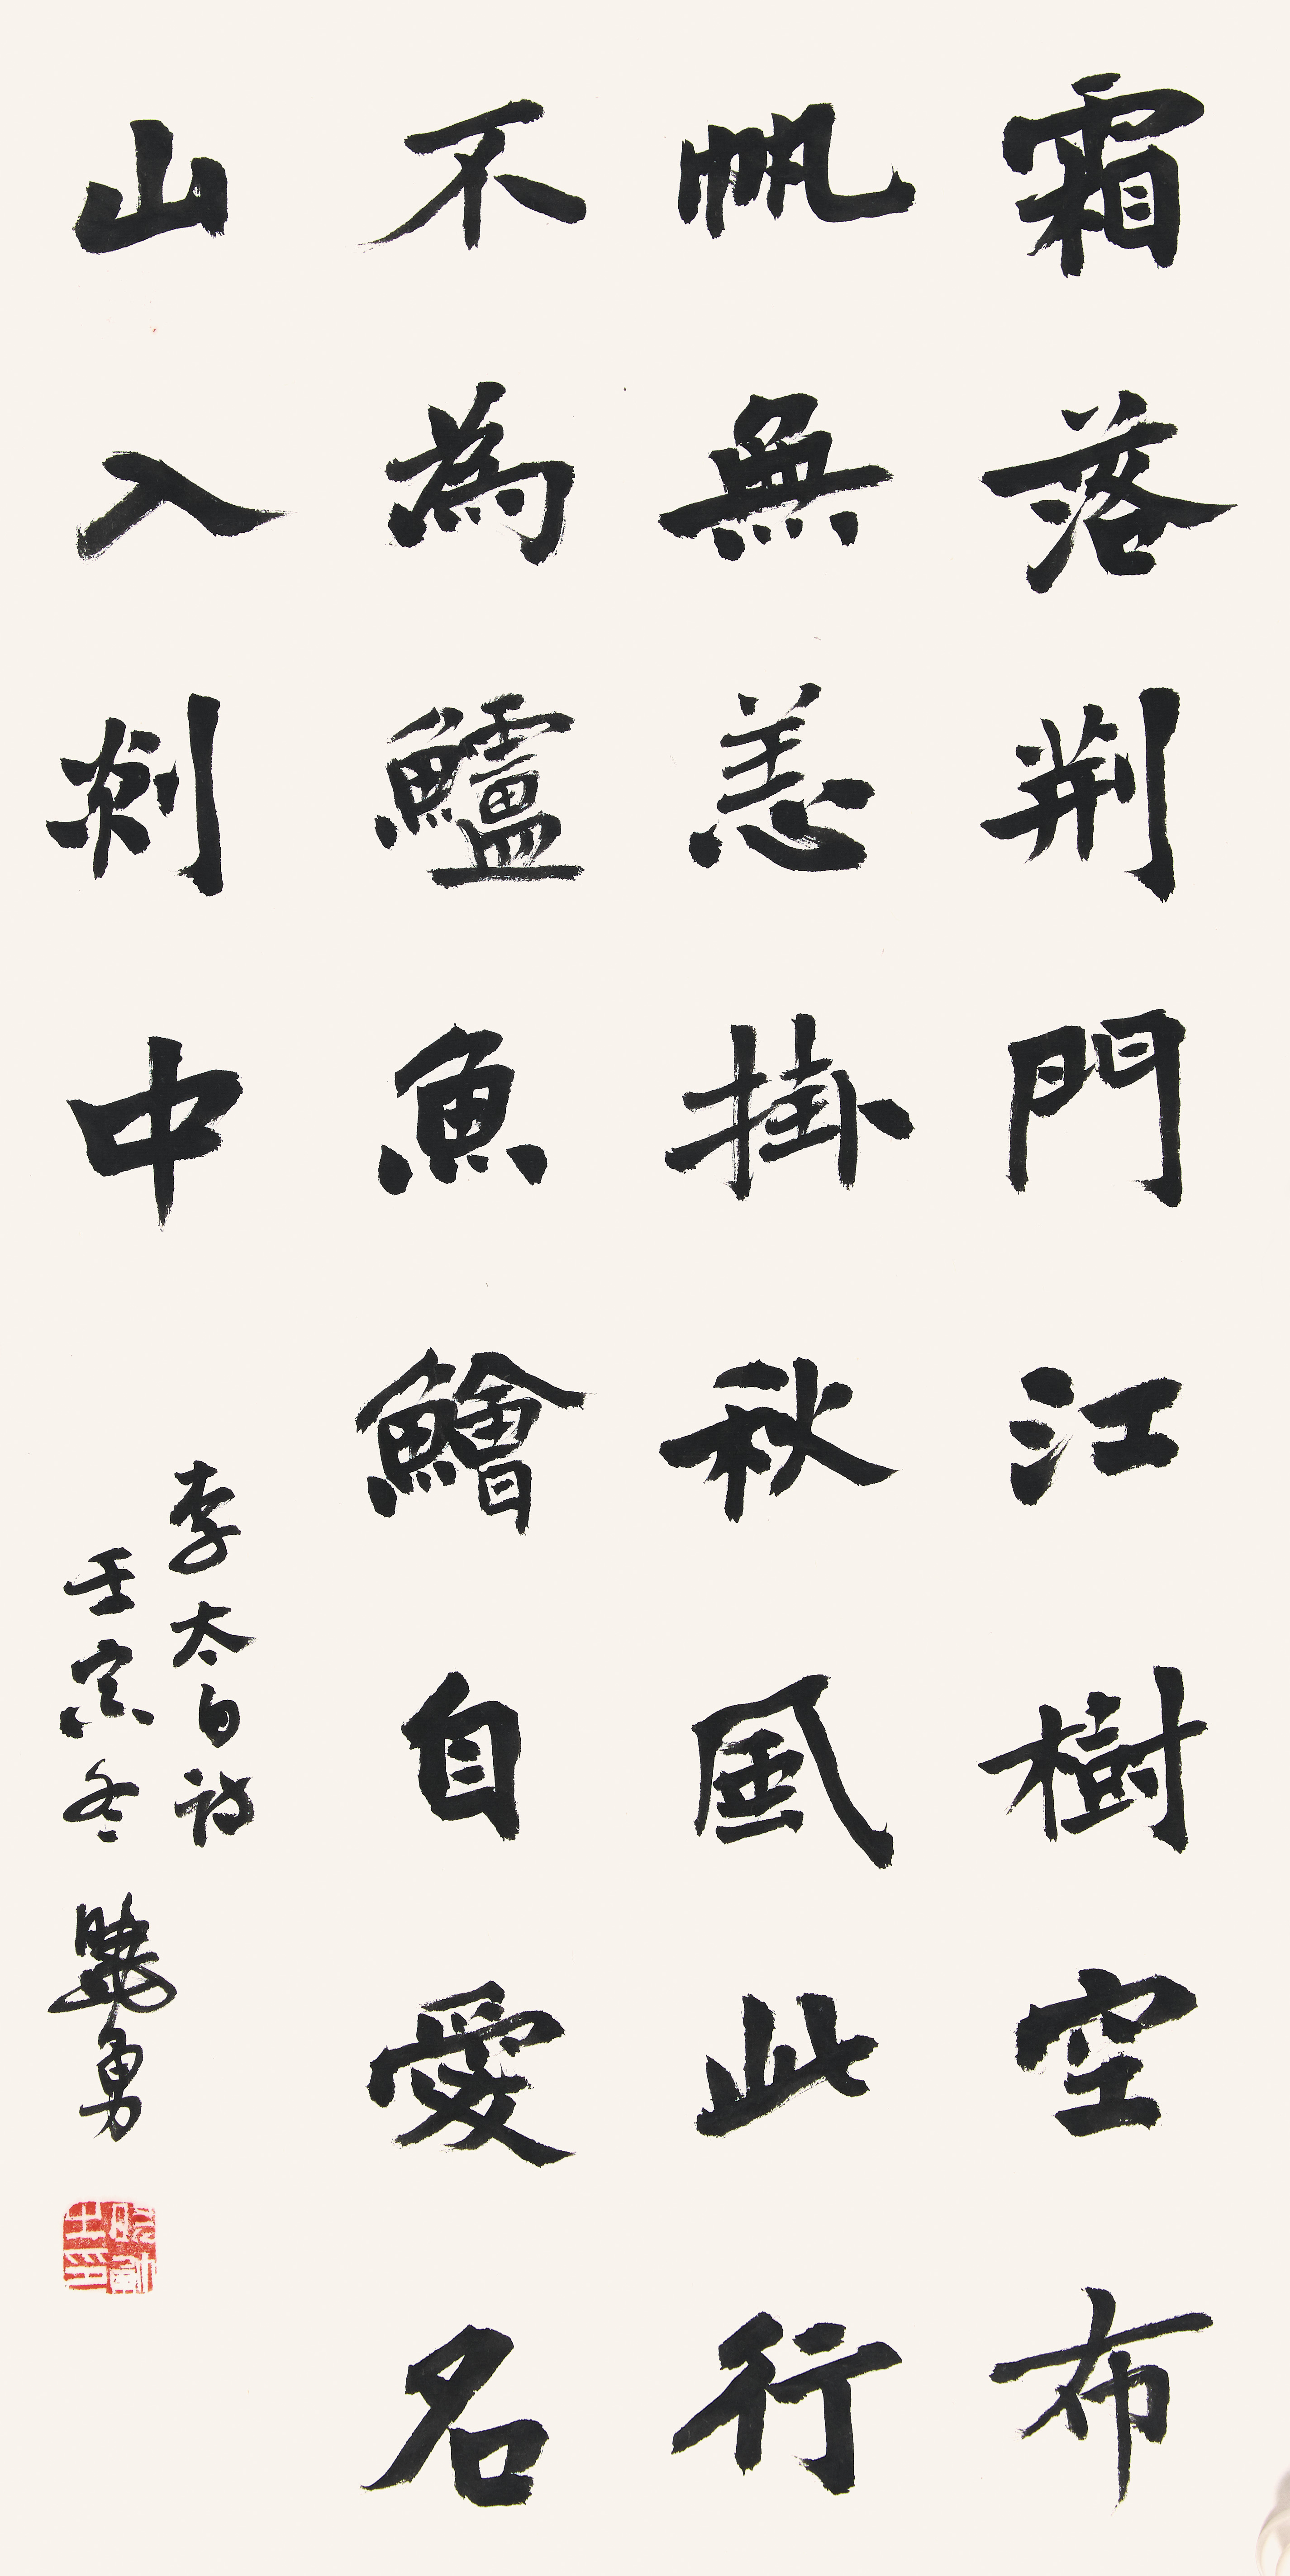 霜落荆門江樹空布
帆無恙掛秋風此行
不為鱸魚鱠自愛名
山入剡中
李太白詩
壬寅冬
曉勇